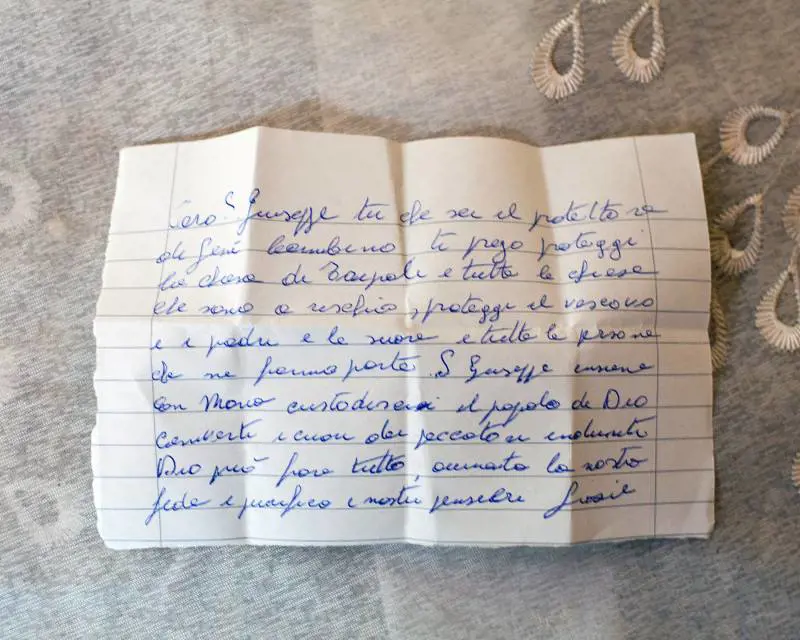 Caro S Giuseppe tu che sei il protettore
di Gesù bambino ti prego proteggi
la chiesa di Tripoli e tutte le chiese
che sono a rischio, proteggi il vescovo
e i padri e le suore e tutte le persone
che ne fanno parte. S Giuseppe insieme
con Maria custodisci il popolo di Dio
converti i cuori dei peccatori induriti
Dio può fare tutto, aumenta la nostra
fede e purifica i nostri pensieri Grazie